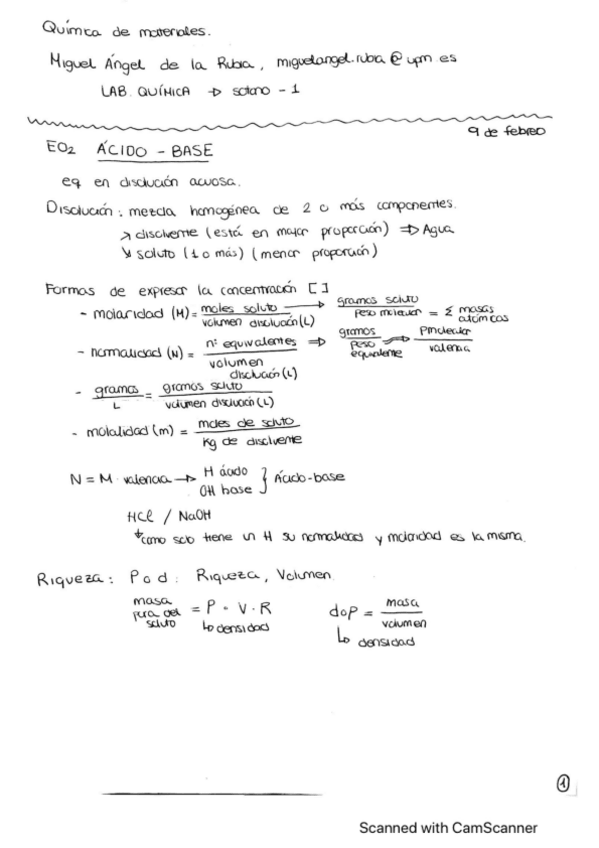 Química de materiales.
Miguel Ángel de la Rubia, miguelangel.rubia@upm.es
LAB. QUÍMICA → sotano -1
9 de febreo
EO2 ÁCIDO - BASE
eq en disolución acuosa.
Disolución: mezcla homogénea de 2 o más componentes.
↗ disolvente (está en mayor proporción) ⇒ Agua
↘ soluto (1 o más) (menor proporción)
Formas de expresar la concentración [ ]
- molaridad (M) = moles soluto / volumen disolución (L) → gramos soluto / peso molecular = Σ masas atómicas
- normalidad (N) = nº equivalentes / volumen disolución (L) ⇒ gramos / peso equivalente → Pmolecular / valencia
- gramos / L = gramos soluto / volumen disolución (L)
- molalidad (m) = moles de soluto / Kg de disolvente
N = M · valencia → H ácido / OH base } Ácido-base
HCl / NaOH
como solo tiene un H su normalidad y molaridad es la misma.
Riqueza: P o d: Riqueza, Volumen
masa pura del soluto = P · V · R
↳ densidad
d o P = masa / volumen
↳ densidad
1
Scanned with CamScanner